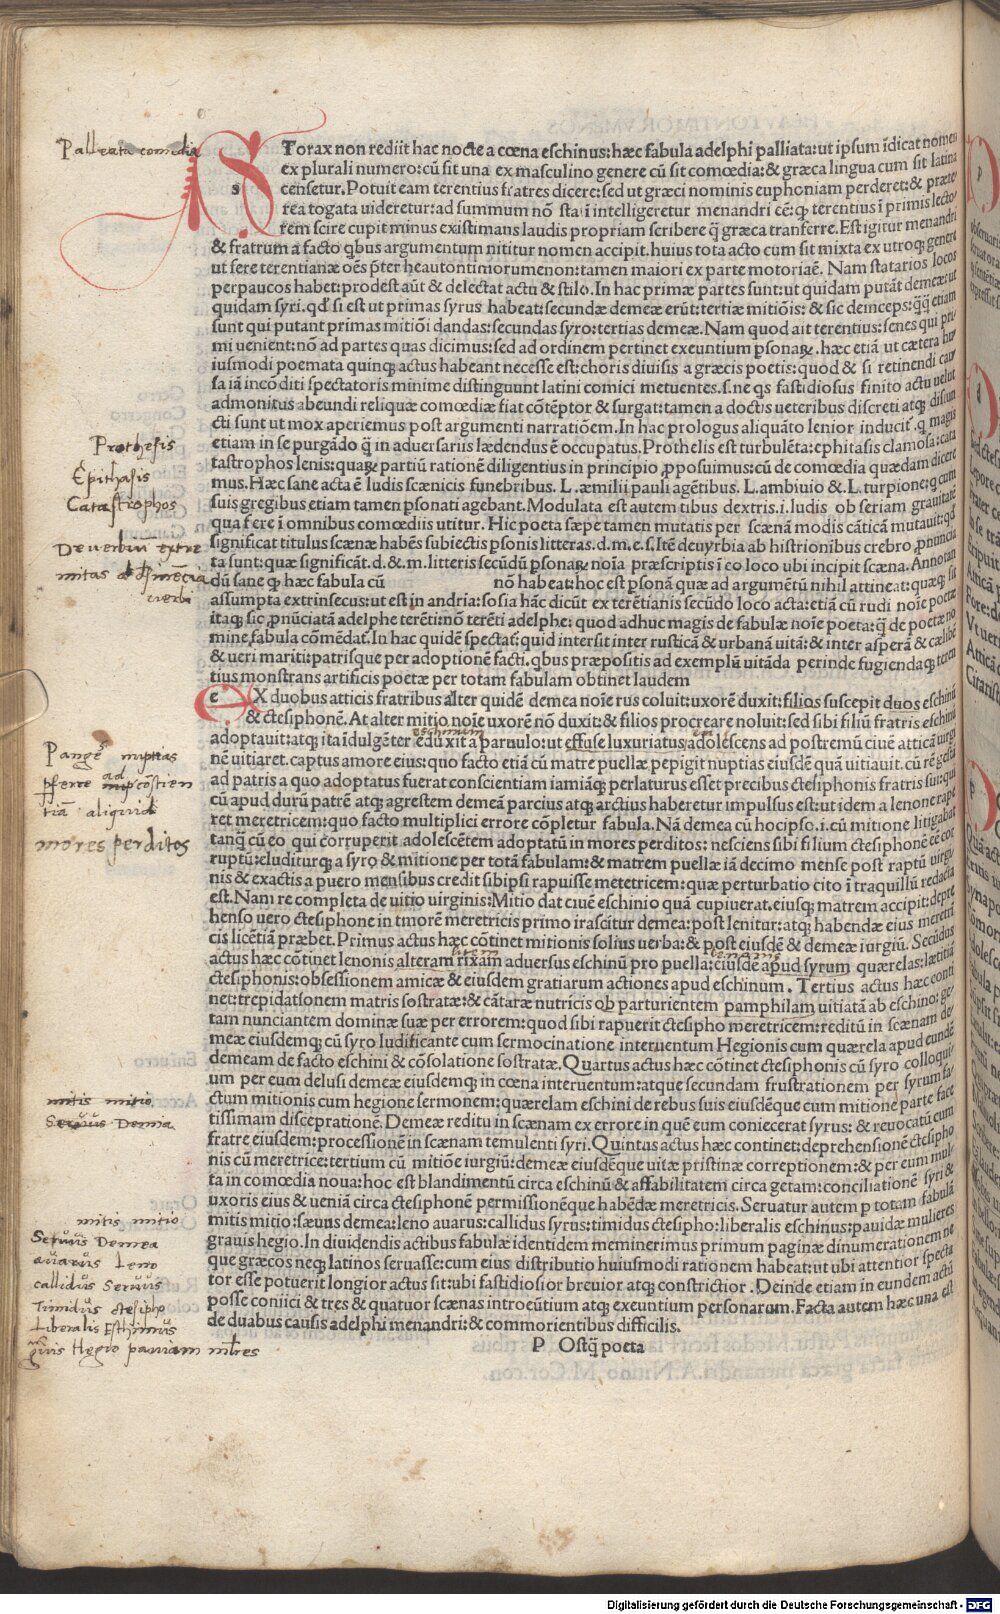 Palleata comedia
STorax non rediit hac nocte a cœna eschinus: hæc fabula adelphi palliata: ut ipsum īdicat nomen
ex plurali numero: cū sit una ex masculino genere cū sit comœdia: & græca lingua cum sit latina
s censetur. Potuit eam terentius fratres dicere: sed ut græci nominis euphoniam perderet: & præte
rea togata uideretur: ad summum nō sta ī intelligeretur menandri eē: ꝙ terentius ī primis lecto
rem scire cupit minus existimans laudis propriam scribere q̄ græca tranferre. Est igitur menandri
& fratrum a facto qbus argumentum nititur nomen accipit. huius tota acto cum sit mixta ex utroq; genere
ut fere terentianæ oēs p̄ter heautontimorumenon: tamen maiori ex parte motoria ē. Nam statarios locos
perpaucos habet: prodest aūt & delectat actu & stilo. In hac primæ partes sunt: ut quidam putāt demeæ: ut
quidam syri. qd si est ut primas syrus habeat: secundæ demeæ erūt: tertiæ mitiōis: & sic deinceps: q̄q̄ etiam
sunt qui putant primas mitiōi dandas: secundas syro: tertias demeæ. Nam quod ait terentius: senes qui pri
mi uenient: nō ad partes quas dicimus: sed ad ordinem pertinet exeuntium psonaꝝ. hæc etiā ut cætera hu
iusmodi poemata quinq; actus habeant necesse est: choris diuisis a græcis poetis: quod & si retinendi cau
sa iā incōditi spectatoris minime distinguunt latini comici metuentes. s. ne qs fastidiosus finito actu uelut
admonitus abeundi reliquæ comœdiæ fiat cōtēptor & surgat: tamen a doctis ueteribus discreti atq; disiun
cti sunt ut mox aperiemus post argumenti narratiōem. In hac prologus aliquāto lenior inducit. q magis
etiam in se purgādo q̄ in aduersariis lædendus ē occupatus. Prothesis est turbulēta: ephitasis clamosa: cata
tastrophos lenis: quaꝝ partiū rationē diligentius in principio ꝓposuimus: cū de comœdia quædam dicere
mus. Hæc sane acta ē ludis scænicis funebribus. L. æmilii pauli agētibus. L. ambiuio &. L. turpione: q cum
suis gregibus etiam tamen psonati agebant. Modulata est autem tibus dextris. i. ludis ob seriam grauitatē
qua fere ī omnibus comœdiis utitur. Hic poeta sæpe tamen mutatis per scænā modis cāticā mutauit: qd
significat titulus scænæ habēs subiectis psonis litteras. d. m. e. s. Itē deuyrbia ab histrionibus crebro ꝓnuncia
ta sunt: quæ significāt. d. & . m. litteris secūdū psonaꝝ noīa præscriptis ī eo loco ubi incipit scæna. Annotan
dū sane q hæc fabula cū nō habeat: hoc est psonā quæ ad argumētū nihil attineat: quæq; sit
assumpta extrinsecus: ut est in andria: sosia hāc dicūt ex terētianis secūdo loco acta: etiā cū rudi noīe poetæ
itaq; sic ꝓnūciatā adelphe terēti: nō terēti adelphe: quod adhuc magis de fabulæ noīe poeta: q̄ de poetæ no
mine fabula cōmēdat. In hac quidē spectat: quid intersit inter rusticā & urbanā uitā: & inter asperā & cælibē
& ueri mariti: patrisque per adoptionē facti. qbus præpositis ad exemplū uitāda perinde fugiendaq; teren
tius monstrans artificis poetæ per totam fabulam obtinet laudem
Prothesis
Epithasis
Catastrophos
Deverbiū extre
mitas
verbi
e EX duobus atticis fratribus alter quidē demea noīe rus coluit: uxorē duxit: filios suscepit duos eschinū
& ctesiphonē. At alter mitio noīe uxorē nō duxit: & filios procreare noluit: sed sibi filiū fratris eschinū
eschinum
adoptauit: atq; ita īdulgēter eduxit a paruulo: ut effuse luxuriatus adolescens ad postremū ciuē atticā uirgi
nē uitiaret. captus amore eius: quo facto etiā cū matre puellæ pepigit nuptias eiusdē quā uitiauit. cū rē gestā
ad patris a quo adoptatus fuerat conscientiam iamiāq; perlaturus esset precibus ctesiphonis fratris sui: qui
cū apud durū patrē atq; agrestem demeā parcius atq; arctius haberetur impulsus est: ut idem a lenone rape
ret meretricem: quo facto multiplici errore cōpletur fabula. Nā demea cū hoc ipso. i. cū mitione litigabat
tanq̄ cū eo qui corruperit adolescētem adoptatū in mores perditos: nesciens sibi filium ctesiphonē eē cor
ruptū: eluditurq; a syro & mitione per totā fabulam: & matrem puellæ iā decimo mense post raptū uirgi
nis & exactis a puero mensibus credit sibi ipsi rapuisse metetricem: quæ perturbatio cito ī traquillū redacta
est. Nam re completa de uitio uirginis: Mitio dat ciuē eschinio quā cupiuerat. eiusq; matrem accipit: depre
henso uero ctesiphone in tmorē meretricis primo irascitur demea: post lenitur: atq; habendæ eius meretri
cis licētiā præbet. Primus actus hæc cōtinet mitionis solius uerba: & post eiusdē & demeæ iurgiū. Secūdus
litem
actus hæc cōtinet lenonis alteram rixam aduersus eschinū pro puella: eiusdē apud syrum quærelas: lætitiā
ctesiphonis: obsessionem amicæ & eiusdem gratiarum actiones apud eschinum. Tertius actus hæc conti
net: trepidatsonem matris sostratæ: & cātaræ nutricis ob parturientem pamphilam uitiatā ab eschino: ge
tam nunciantem dominæ suæ per errorem: quod sibi rapuerit ctesipho meretricem: reditū in scænam de
meæ eiusdemq; cū syro ludificante cum sermocinatione interuentum Hegionis cum quærela apud eundē
demeam de facto eschini & cōsolatione sostratæ. Quartus actus hæc cōtinet ctesiphonis cū syro colloqui
um per eum delusi demeæ eiusdemq; in cœna interuentum: atque secundam frustrationem per syrum fa
ctum mitionis cum hegione sermonem: quærelam eschini de rebus suis eiusdēque cum mitione parte face
tissimam disceprationē. Demeæ reditu in scænam ex errore in quē eum coniecerat syrus: & reuocatū cum
fratre eiusdem: processionē in scænam temulenti syri. Quintus actus hæc continet: deprehensionē ctesipho
nis cū meretrice: tertium cū mitiōe iurgiū: demeæ eiusdēque uitæ pristinæ correptionem: & per eum mul
ta in comœdia noua: hoc est blandimentū circa eschinū & affabilitatem circa getam: conciliationē syri &
uxoris eius & ueniā circa ctesiphonē permissionēque habēdæ meretricis. Seruatur autem p totam fabulā
mitis mitio: sæuus demea: leno auarus: callidus syrus: timidus ctesipho: liberalis eschinus: pauidæ mulieres
grauis hegio. In diuidendis actibus fabulæ identidem meminerimus primum paginæ dinumerationem ne
que græcos neq; latinos seruasse: cum eius distributio huiusmodi rationem habeat: ut ubi attentior specta
tor esse potuerit longior actus sit: ubi fastidiosior breuior atq; constrictior. Deinde etiam in eundem actū
posse coniici & tres & quatuor scænas introeūtium atq; exeuntium personarum. Facta autem hæc una est
de duabus causis adelphi menandri: & commorientibus difficilis.
P Ostq̄ poeta
Pangē nuptias
pferre ad conscien
tiā aliquid
mores perditos
mitis mitio
Seruus Demea
mitis mitio
Seruus Demea
avarus Leno
callidus Seruus
Timidus ctesipho
Liberalis Esthinus
gūis Hegio paviam mlres
Digitalisierung gefördert durch die Deutsche Forschungsgemeinschaft - DFG